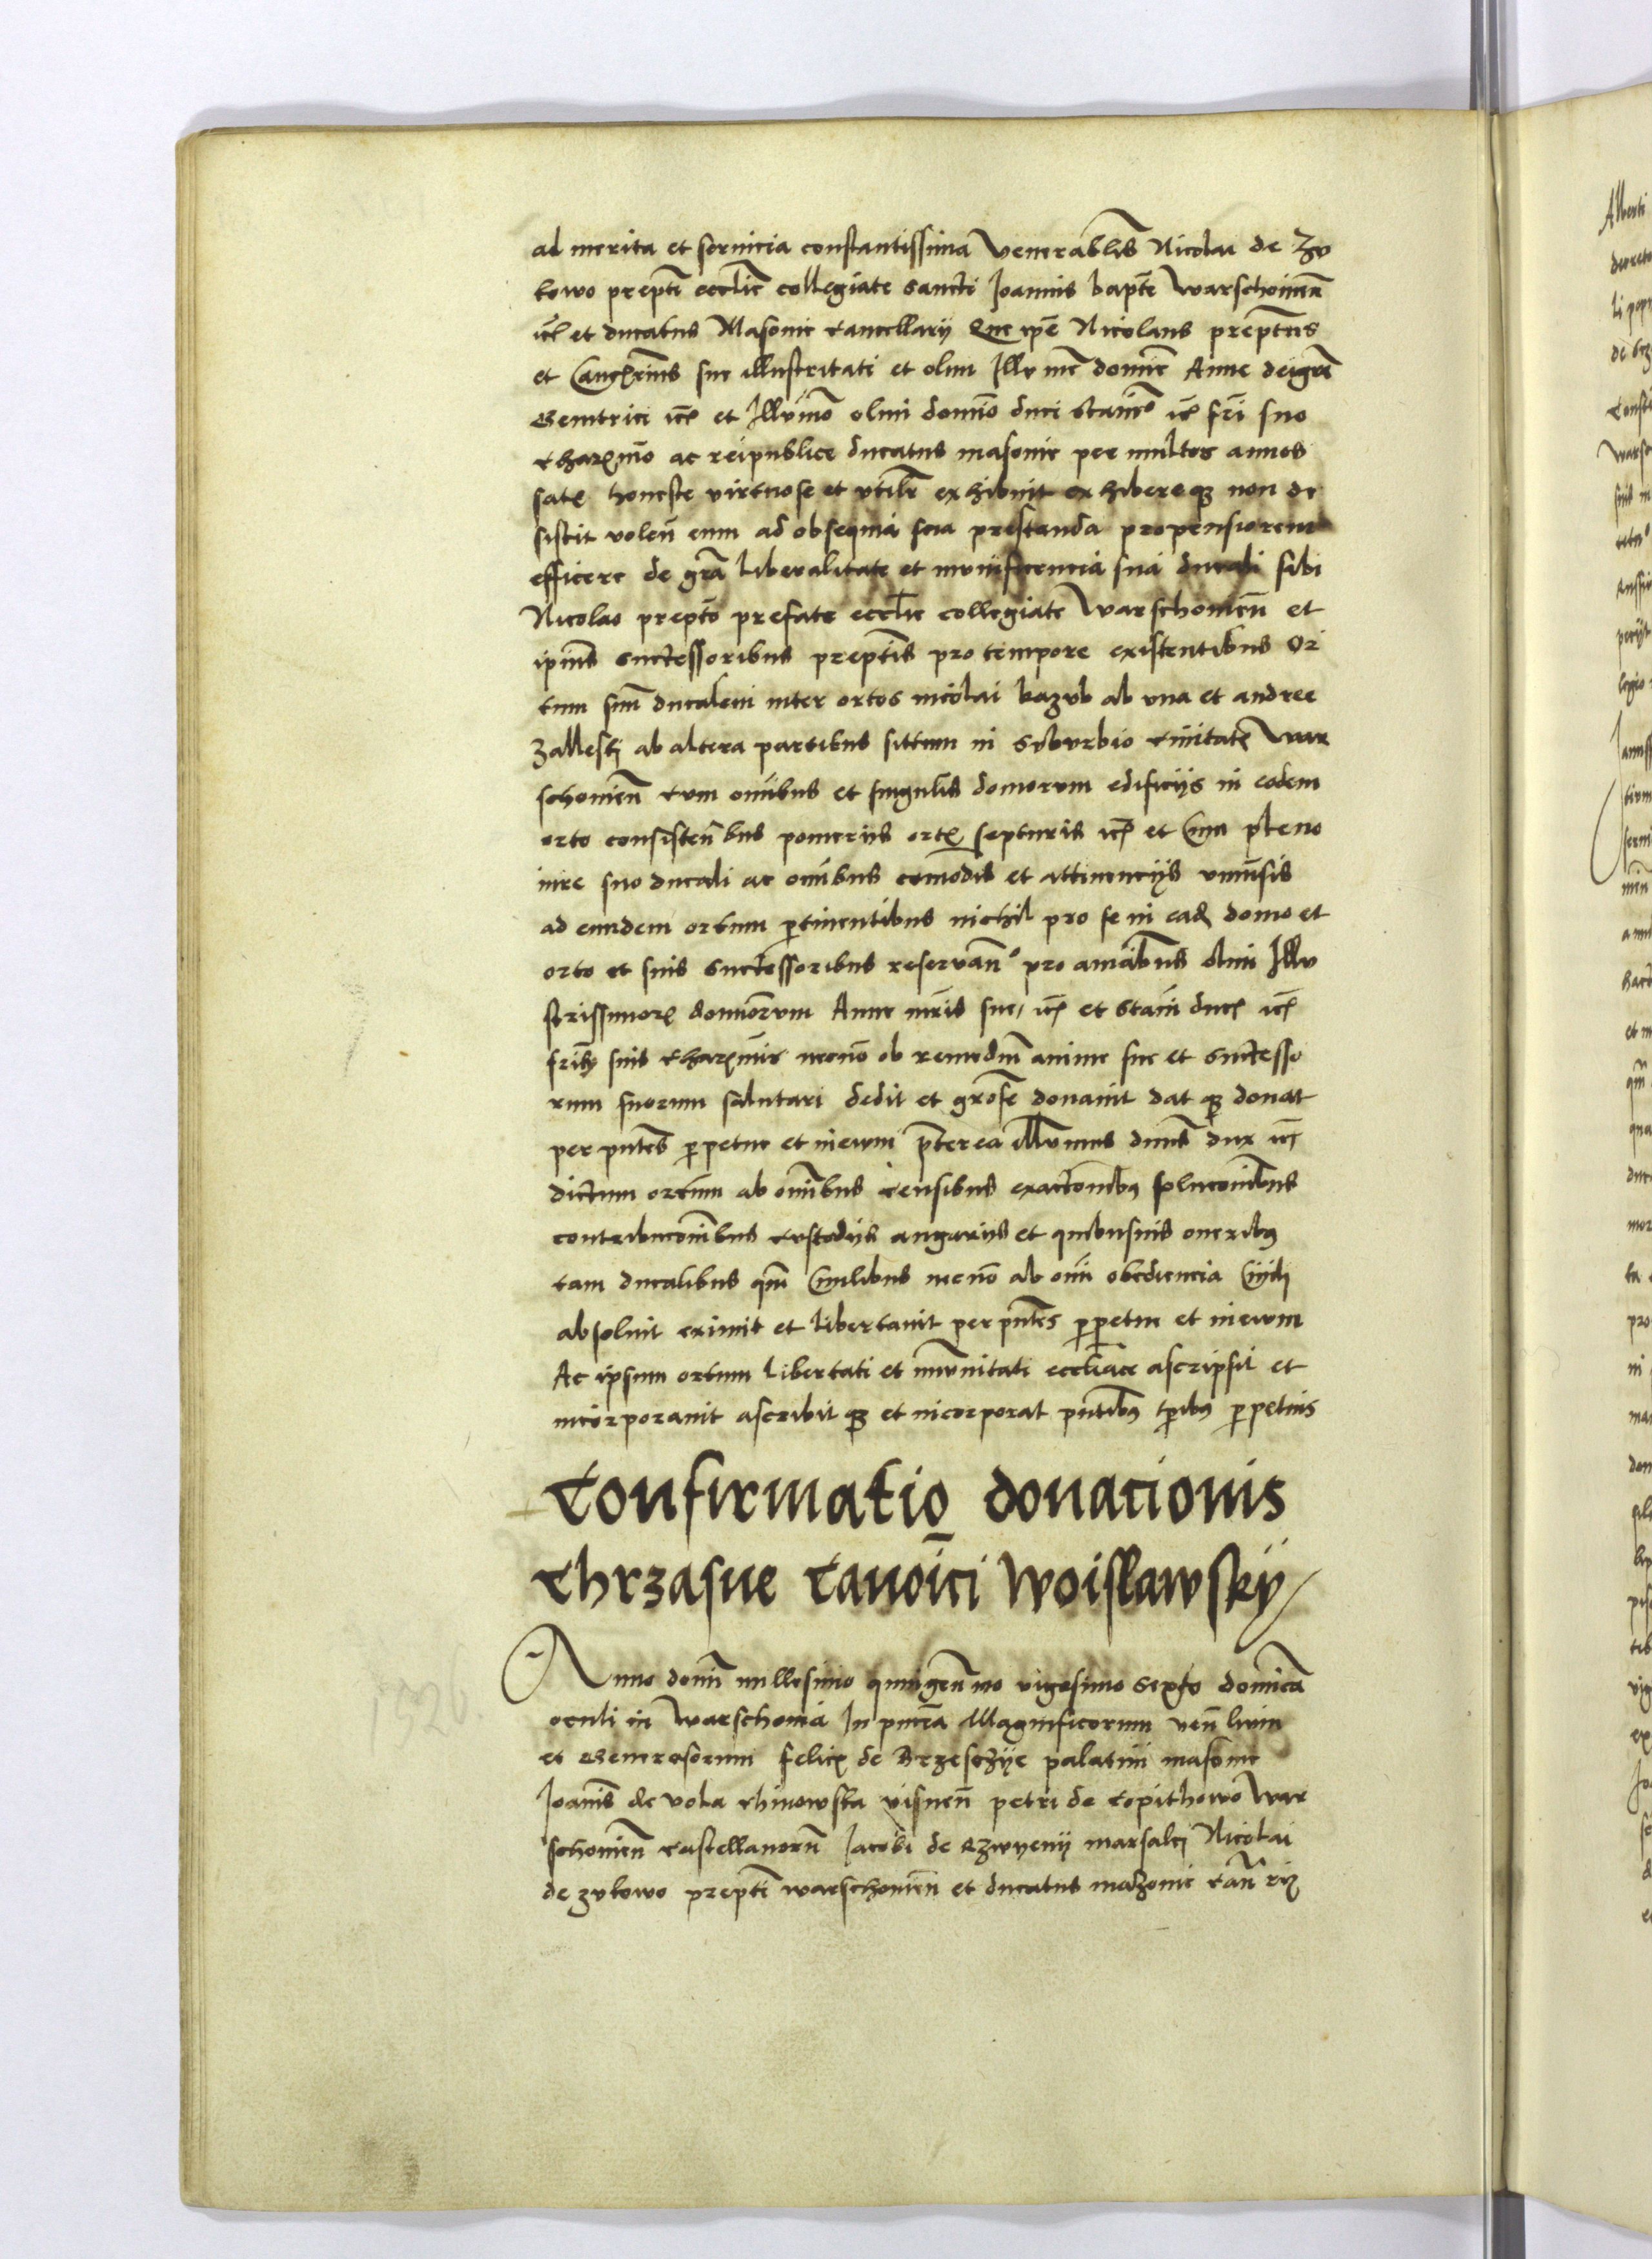 ad merita et servicia constantissima Venerablis Nicolai de Zu
kowo prepti ecclie collegiate sancti Joannis bapte Warschovien
etc et ducatus Masovie cancellarij Que ipe Nicolaus preptus
et Cancrius sue illustritati et olim Illu me domine Anne dei gra
Genitrici etc et Illumo olim domino duci Stanis etc fri suo
charmo ac reipublice ducatus masovie per multos annos
satis honeste virtuose et utilr exhibuit exhibereque non de
sistit volen eum ad obsequia sua prestanda propensiorem
efficere de gra liberalitate et munificencia sua ducali sibi
Nicolao prepto prefate ecclie collegiate Warschovien et
ipius successoribus preptis pro tempore existentibus Or
tum suum ducalem inter ortos nicolai kazub ab una et andree
Zallesky ab altera partibus situm in suburbio civitatis War
schovien cum omibus et singulis domorum edificijs in eodem
orto consistenbus pomeriis ortis septuris etc et Cum pleno
iure suo ducali ac omibus comodis et attinencijs univsis
ad eundem ortum ptinentibus nichil pro se in eade domo et
orto et suis successoribus reservan pro animabus olim Illu
strissimor dominorum Anne mris sue etc et Stani ducis etc
fris sui charmis necno ob remedium anime sue et successo
rum suorum salutari dedit et grose donavit dat que donat
per pntes ppetue et in evum pterea Illumus dnus dux etc
dictum ortum ab omibus censibus exactionibus solucionibus
contribucionibus custodijs angariis et quibusvis oneribus
tam ducalibus qm Civilibus necno ab omi obediencia Civili
absolvit eximit et libertavit per pntes ppetuu et in evum
Ac ipsum ortum libertati et imunitati ecclice ascripsit et
incorporavit ascribit que et incorporat pntibus tpibus ppetuis
Confirmatio donacionis
Chrzasne Canoici Woislawsky
Anno domi millesimo quingenmo vigesimo sexto dominica
oculi in Warschovia In pncia Magnificorum ven
et Generosorum felicis de Brzesczije palatini masovie
Joanis de vola Chinowska visnen petri de Copithowo War
schovien castellanorum Jacobi de marsalci Nicolai
de zukowo prepti warschovien et ducatus mazovie